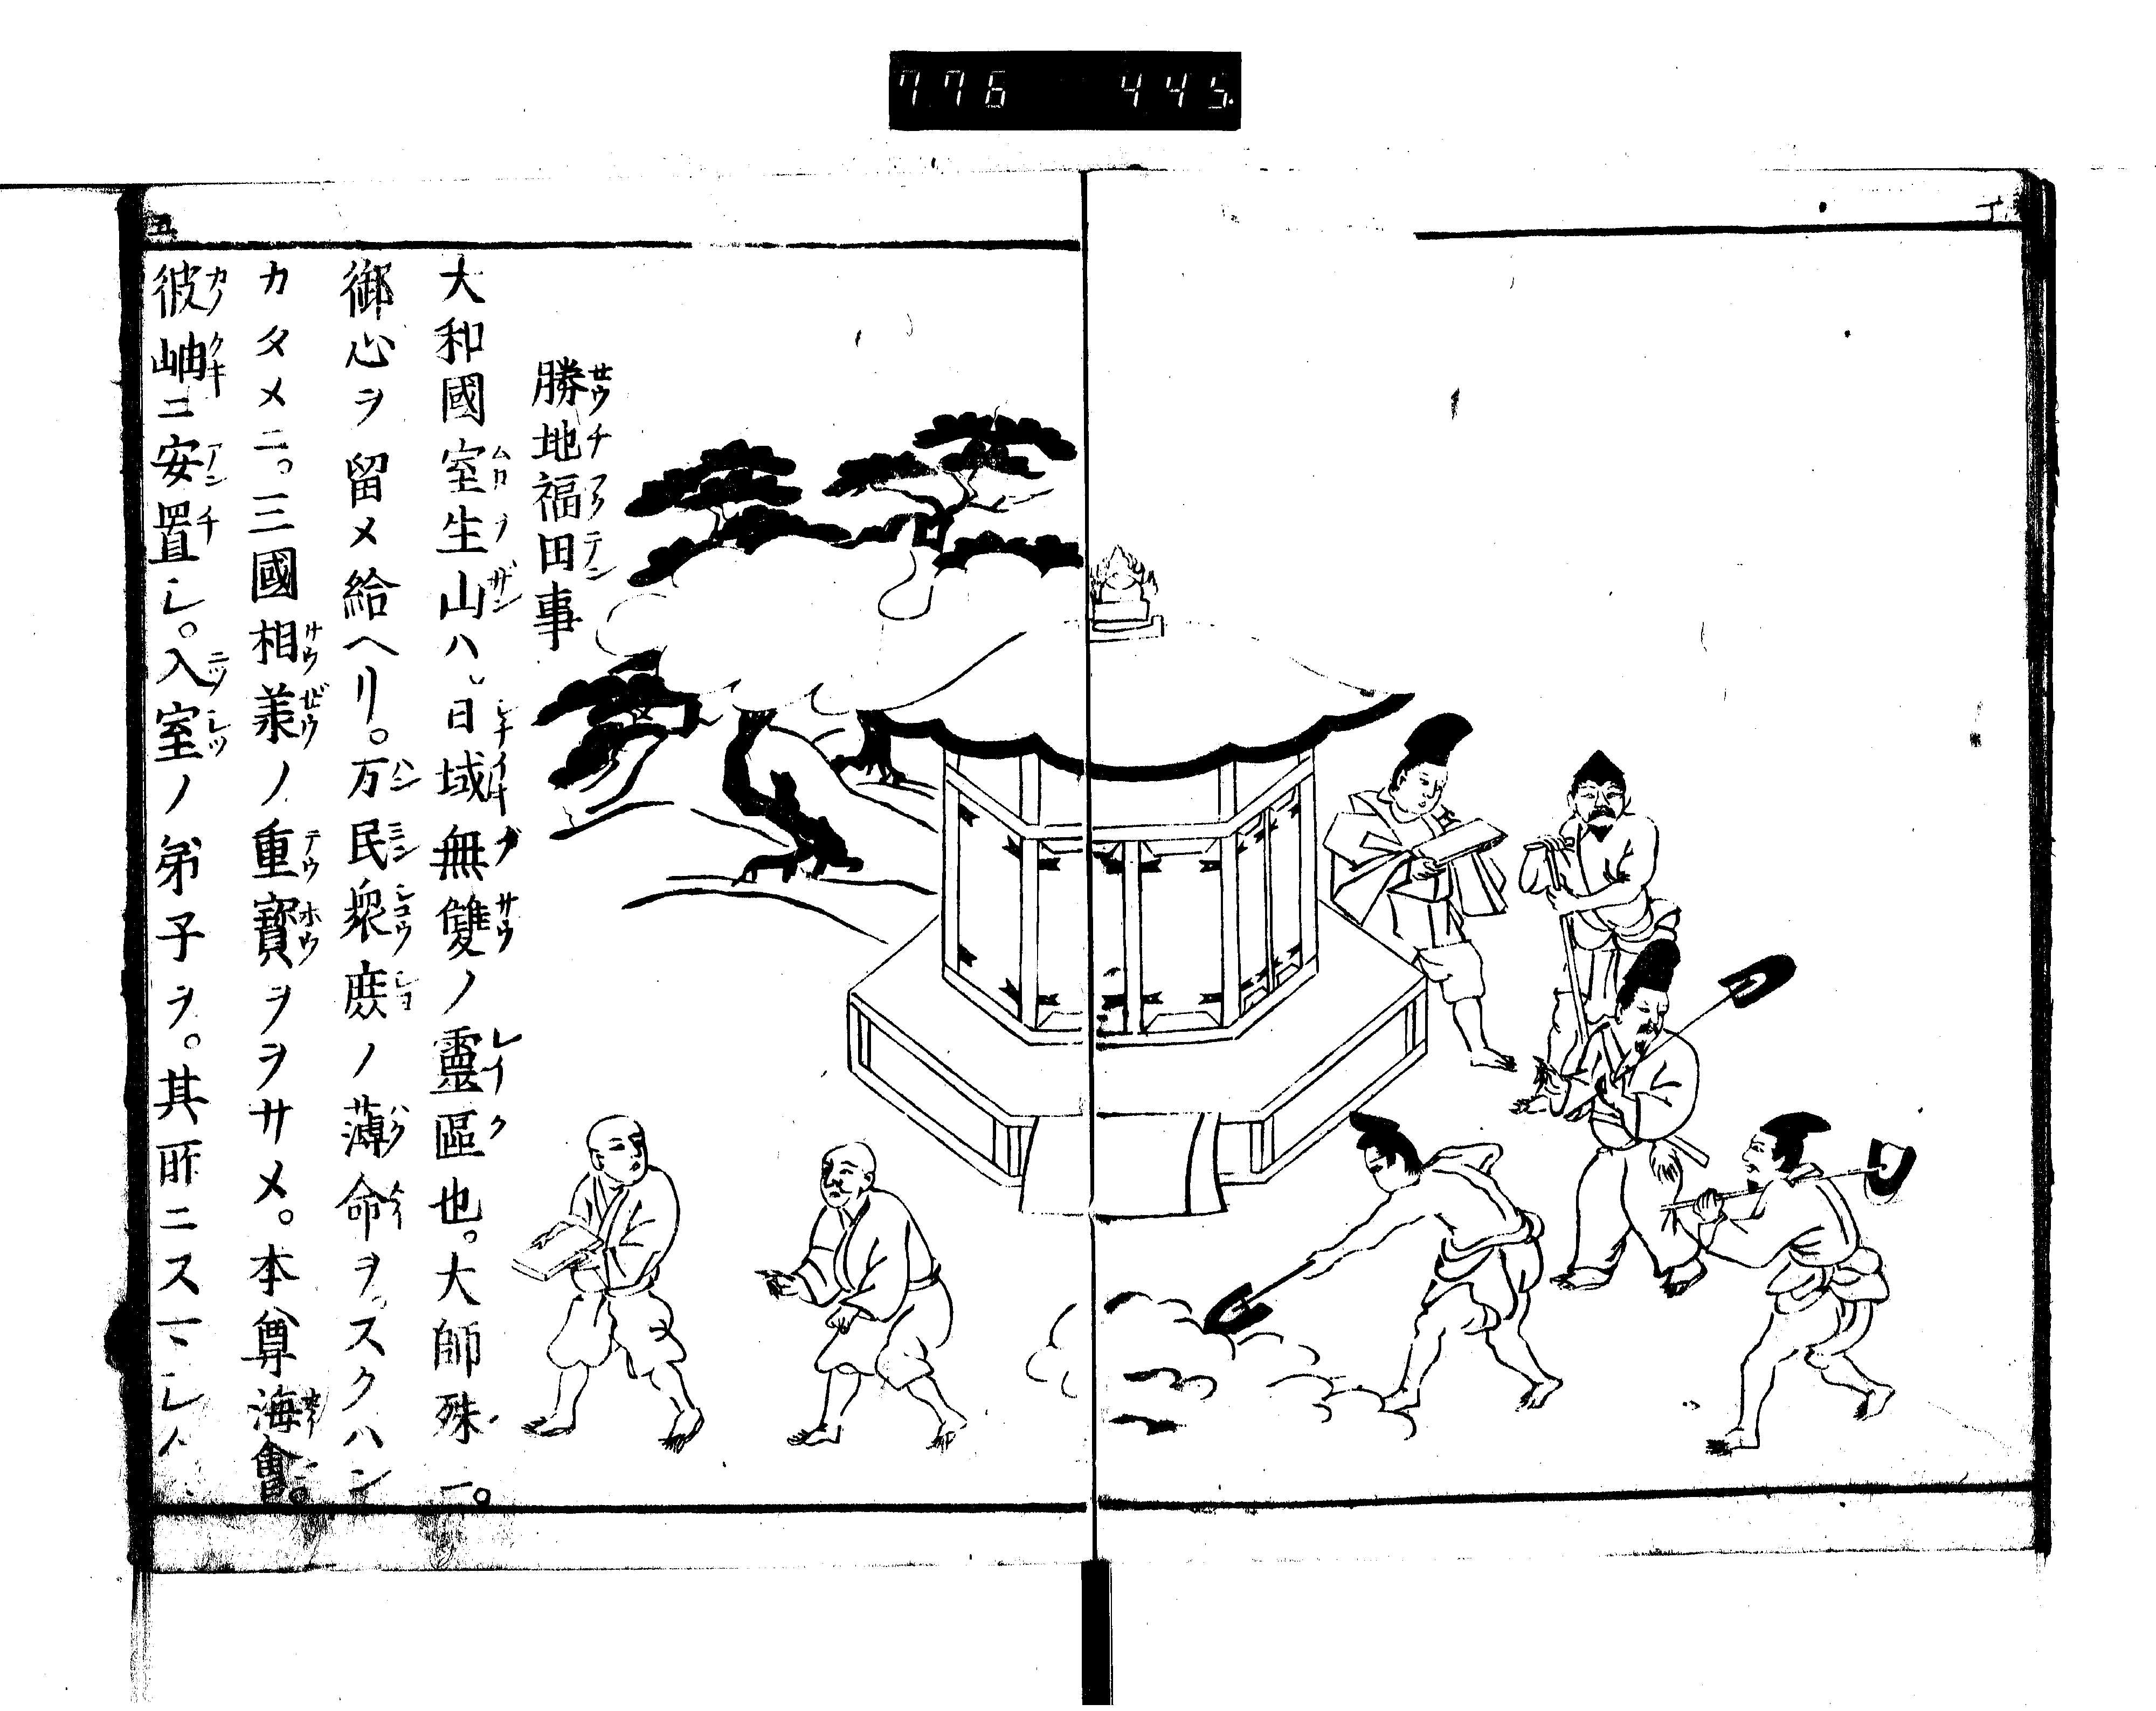 776 445
勝地福田事
大和國室生山ハ、日域無雙ノ靈區也。大師殊ニ。
御心ヲ留メ給ヘリ。万民衆庶ノ薄命ヲ。スクハン
カタメニ。三國相羕ノ重寳ヲヲサメ。本尊海會。
彼岫ニ安置シ。入室ノ弟子ヲ。其所ニス
五